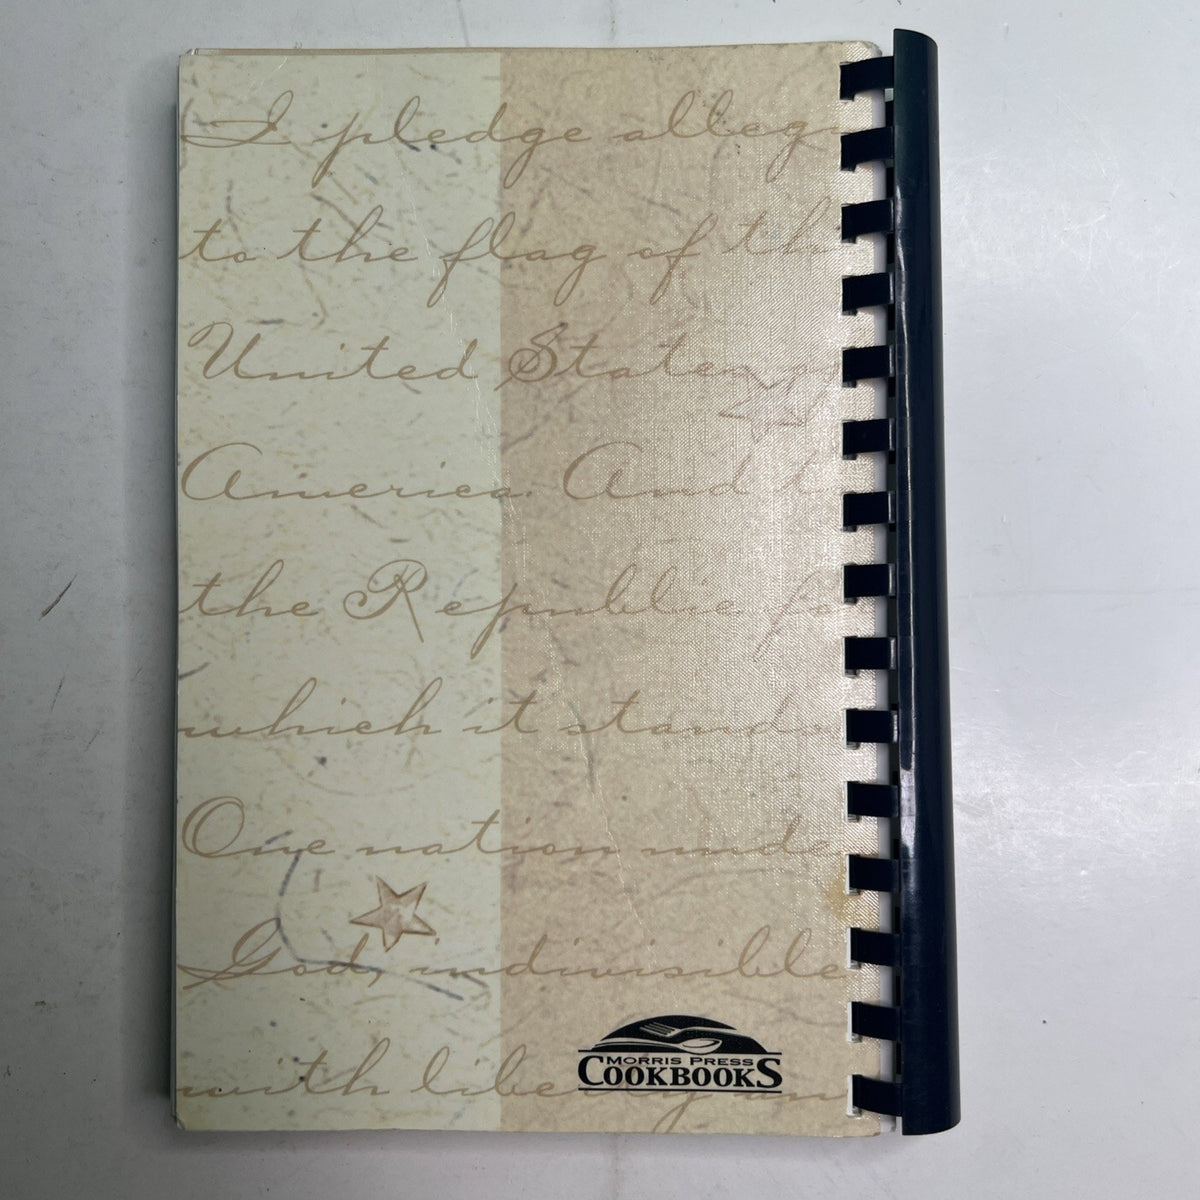 I pledge alleg
to the flag of thi
United States of
America. And t
the Republic fo
which it stands
One nation unde
God, indivisible
with liberty an
MORRIS PRESS
COOKBOOKS